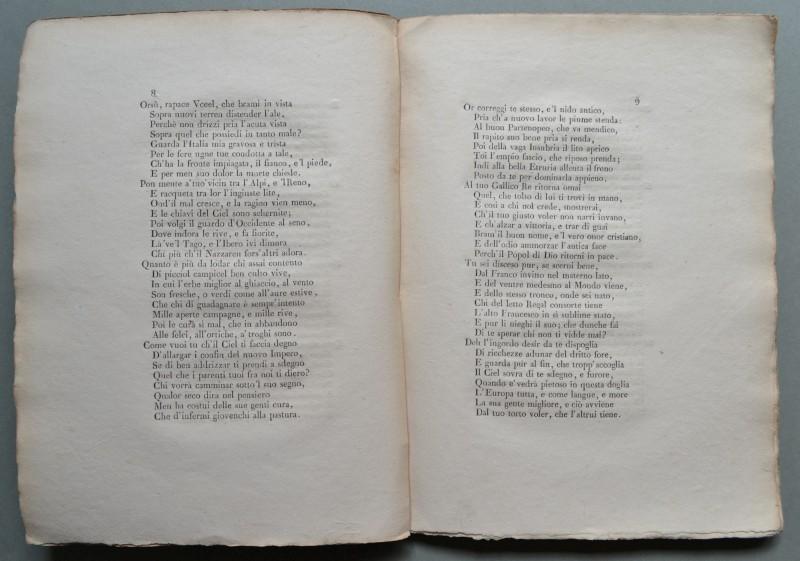 8
Orsù, rapace Vccel, che brami in vista
Sopra nuovi terren distender l'ale,
Perchè non drizzi pria l'acuta vista
Sopra quel che possiedi in tanto male?
Guarda l'Italia mia gravosa e trista
Per le fere ugne tue condotta a tale,
Ch'ha la fronte impiagata, il fianco, e'l piede,
E per men suo dolor la morte chiede.
Pon mente a'tuo'vicin tra l'Alpi, e 'lReno,
E racqueta tra lor l'ingiuste lite,
Ond'il mal cresce, e la ragion vien meno,
E le chiavi del Ciel sono schernite;
Poi volgi il guardo d'Occidente al seno,
Dove indora le rive, e fa fiorite,
Là've'l Tago, e l'Ibero ivi dimora
Chi più ch'il Nazzaren fors'altri adora.
Quanto è più da lodar chi assai contento
Di picciol campicel ben culto vive,
In cui l'erbe miglior al ghiaccio, al vento
Son fresche, o verdi come all'aure estive,
Che chi di guadagnare è sempr'intento
Mille aperte campagne, e mille rive,
Poi le cura sì mal, che in abbandono
Alle felci, all'ortiche, a'troghi sono.
Come vuoi tu ch'il Ciel ti faccia degno
D'allargar i confin del nuovo Impero,
Se di ben addrizzar ti prendi a sdegno
Quel che i parenti tuoi fra noi ti diero?
Chi vorrà camminar sotto'l suo segno,
Qualor seco dirà nel pensiero
Men ha costui delle sue genti cura,
Che d'infermi giovenchi alla pastura.
9
Or correggi te stesso, e'l nido antico,
Pria ch'a nuovo lavor le piume stenda:
Al buon Partenopeo, che va mendico,
Il rapito suo bene pria si renda,
Poi della vaga Insubria il lito aprico
Toi l'empio fascio, che riposo prenda;
Indi alla bella Etruria allenta il freno
Posto da te per dominarla appieno.
Al tuo Gallico Re ritorna omai
Quel, che tolto di lui ti trovi in mano,
E così a chi nol crede, mostrerai,
Ch'il tuo giusto voler non narri invano,
E ch'alzar a vittoria, e trar di guai
Bram'il buon nome, e'l vero onor cristiano,
E dell'odio ammorzar l'antica face
Perch'il Popol di Dio ritorni in pace.
Tu sei disceso pur, se scerni bene,
Dal Franco invino nel materno lato,
E del ventre medesmo al Mondo viene,
E dello stesso tronco, onde sei nato,
Chi del letto Regal consorte tiene
L'alto Francesco in sì sublime stato,
E pur li nieghi il suo; che dunche fai
Di te sperar chi non ti vidde mai?
Deh l'ingordo desir da te dispoglia
Di ricchezze adunar del dritto fore,
E guarda pur al fin, che tropp'accoglia
Il Ciel sovra di te sdegno, e furore,
Quando e'vedrà pietoso in questa doglia
L'Europa tutta, e come langue, e more
La sua gente migliore, e ciò avviene
Dal tuo torto voler, che l'altrui tiene.